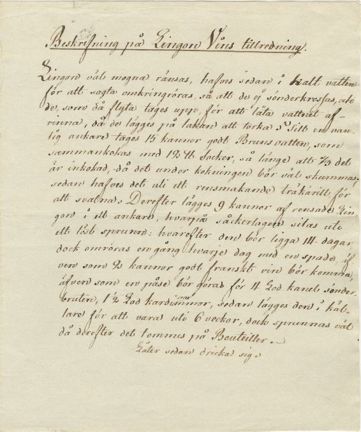 Beskrifning på Lingon Vins tillredning.
Lingon väl mogna ränsas, hafvas sedan i kalt vatten
för att sagta omkringröras, så att de ej sönderkrossas, alt
de, som då flyta tages upp, för att låta vattnet af-
rinna, då de lägges på lakan att torka. Till en van-
lig ankare tages 15 kannor godt Bruns vatten, som
sammankokas med 12 ℔ Socker, så länge att 1/3 del
är inkokad, då det under kokningen bör väl skummas,
sedan hafves det uti ett rensmakande träkäril för
att svalna. Derefter lägges 9 kannor af rensade Lin-
gon i ett ankare, hvarpå såckerlagen silas uti
ett löst sprund: hvarefter den bör ligga 14 dagar
dock omröras en gång hvarje dag med en spade, äf-
ven som 2 kannor godt franskt vin bör komma,
äfven som en påse bör göras för 1 Lod kanel sönder-
bruten, 1½ Lod kardemumma, sedan lägges den i käl-
lare för att vara uti 6 veckor, dock sprundas väl
då derefter det tommes på Bouteiller.
Låter sedan dricka sig.